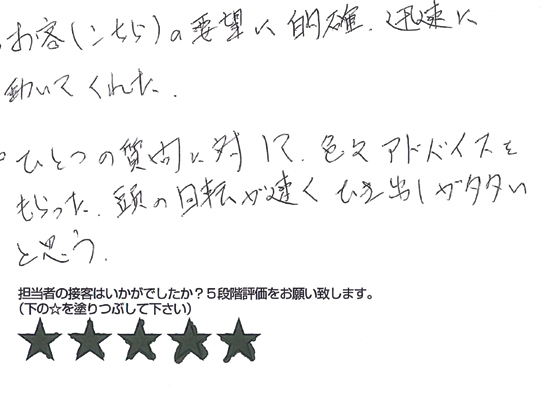 。お客(こちら)の要望に的確、迅速に
動いてくれた。
。ひとつの質問に対して、色々アドバイスを
もらった。頭の回転が速く ひき出しがタタい
と思う。
担当者の接客はいかがでしたか?5段階評価をお願い致します。
(下の☆を塗りつぶして下さい)
★★★★★